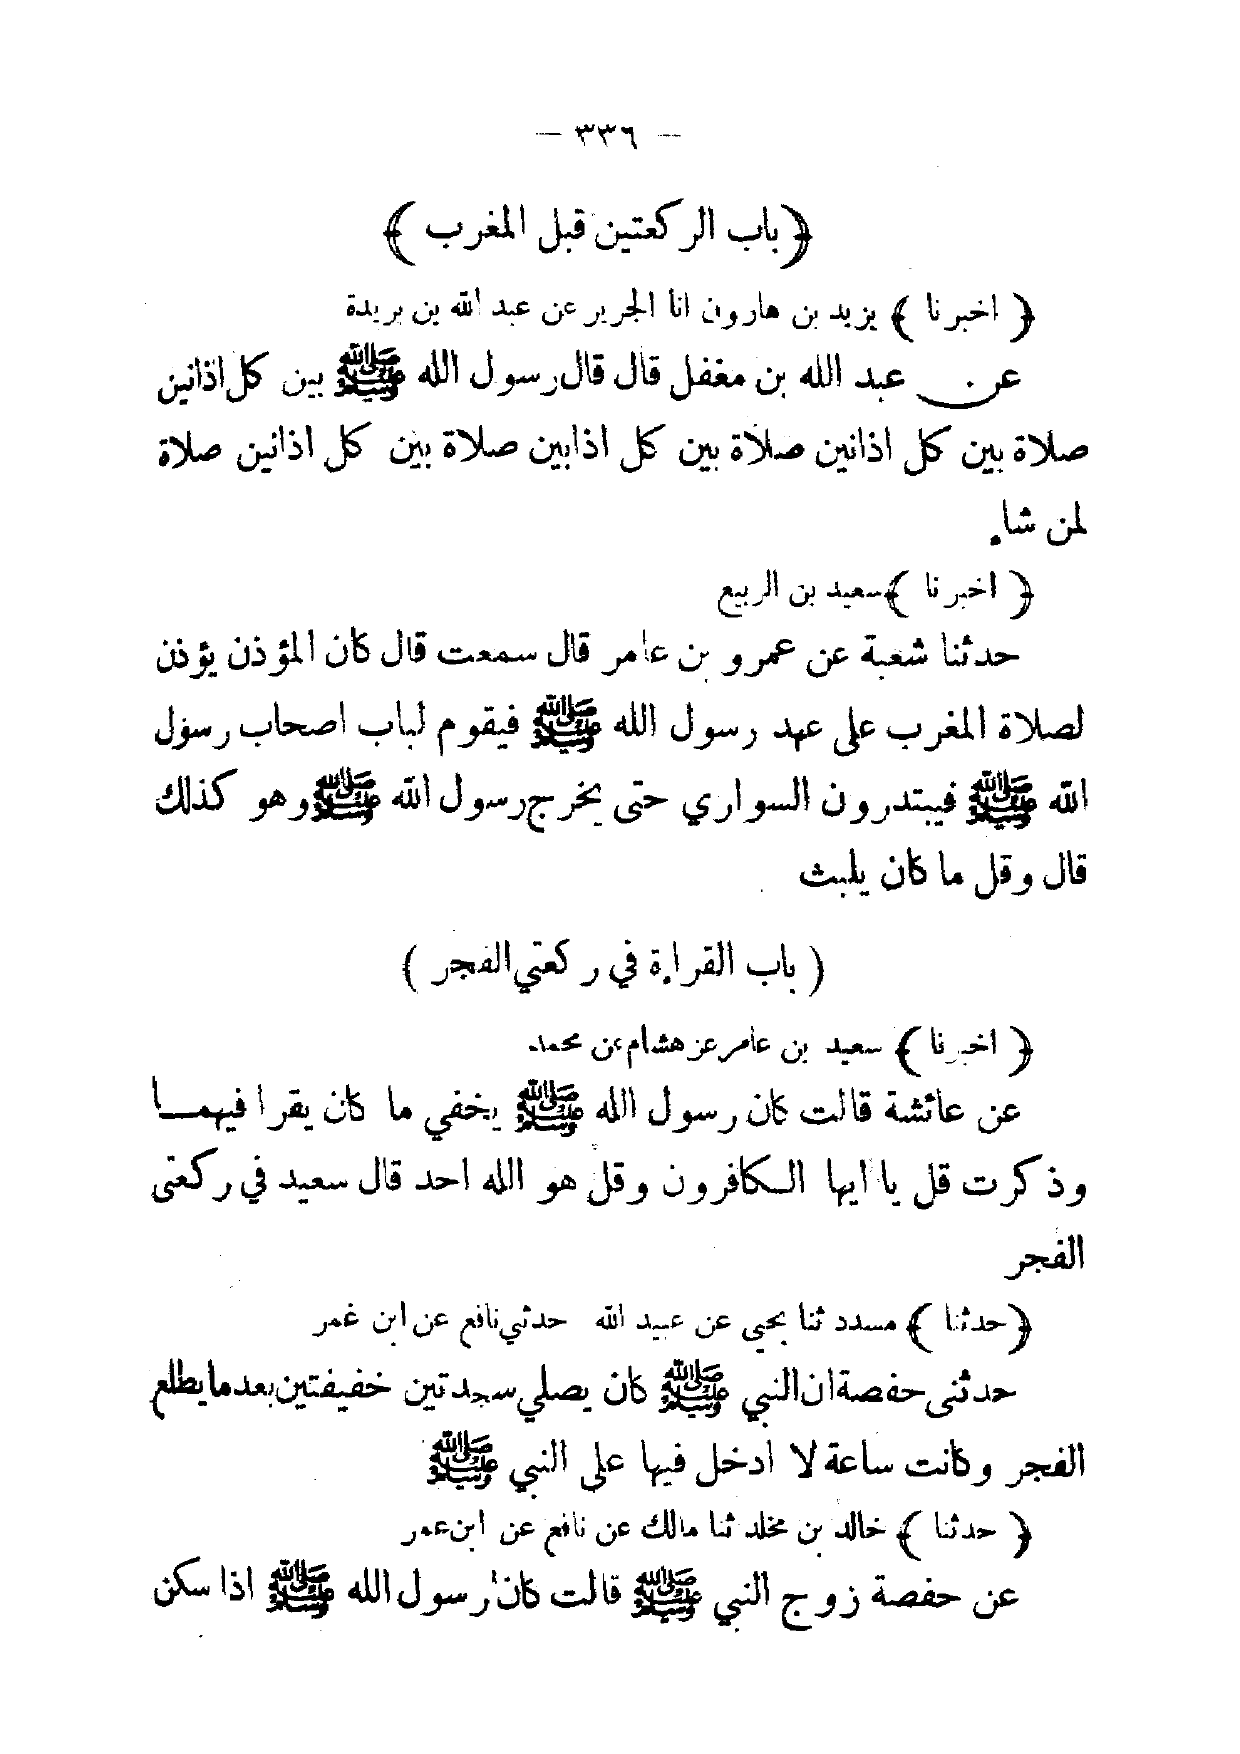 — ٣٣٦ —
﴿ باب الركعتين قبل المغرب ﴾
﴿ اخبرنا ﴾ يزيد بن هارون انا الجرير عن عبد الله بن بريدة
عن عبد الله بن مغفل قال قال رسول الله ﷺ بين كل اذانين
صلاة بين كل اذانين صلاة بين كل اذابين صلاة بين كل اذانين صلاة
لمن شاء
﴿ اخبرنا ﴾ سعيد بن الربيع
حدثنا شعبة عن عمرو بن عامر قال سمعت قال كان المؤذن يؤذن
لصلاة المغرب على عهد رسول الله ﷺ فيقوم لباب اصحاب رسول
الله ﷺ فيبتدرون السواري حتى يخرج رسول الله ﷺ وهو كذلك
قال وقل ما كان يلبث
( باب القراءة في ركعتي الفجر )
﴿ اخبرنا ﴾ سعيد بن عامر عن هشام عن محمد
عن عائشة قالت كان رسول الله ﷺ يخفي ما كان يقرا فيهما
وذكرت قل يا ايها الكافرون وقل هو الله احد قال سعيد في ركعتى
الفجر
﴿ حدثنا ﴾ مسدد ثنا يحيى عن عبيد الله حدثي نافع عن ابن غمر
حدثنى حفصة ان النبي ﷺ كان يصلي سجدتين خفيفتين بعد ما يطلع
الفجر وكانت ساعة لا ادخل فيها على النبي ﷺ
﴿ حدثنا ﴾ خالد بن مخلد ثنا مالك عن نافع عن ابن عمر
عن حفصة زوج النبي ﷺ قالت كان رسول الله ﷺ اذا سكن